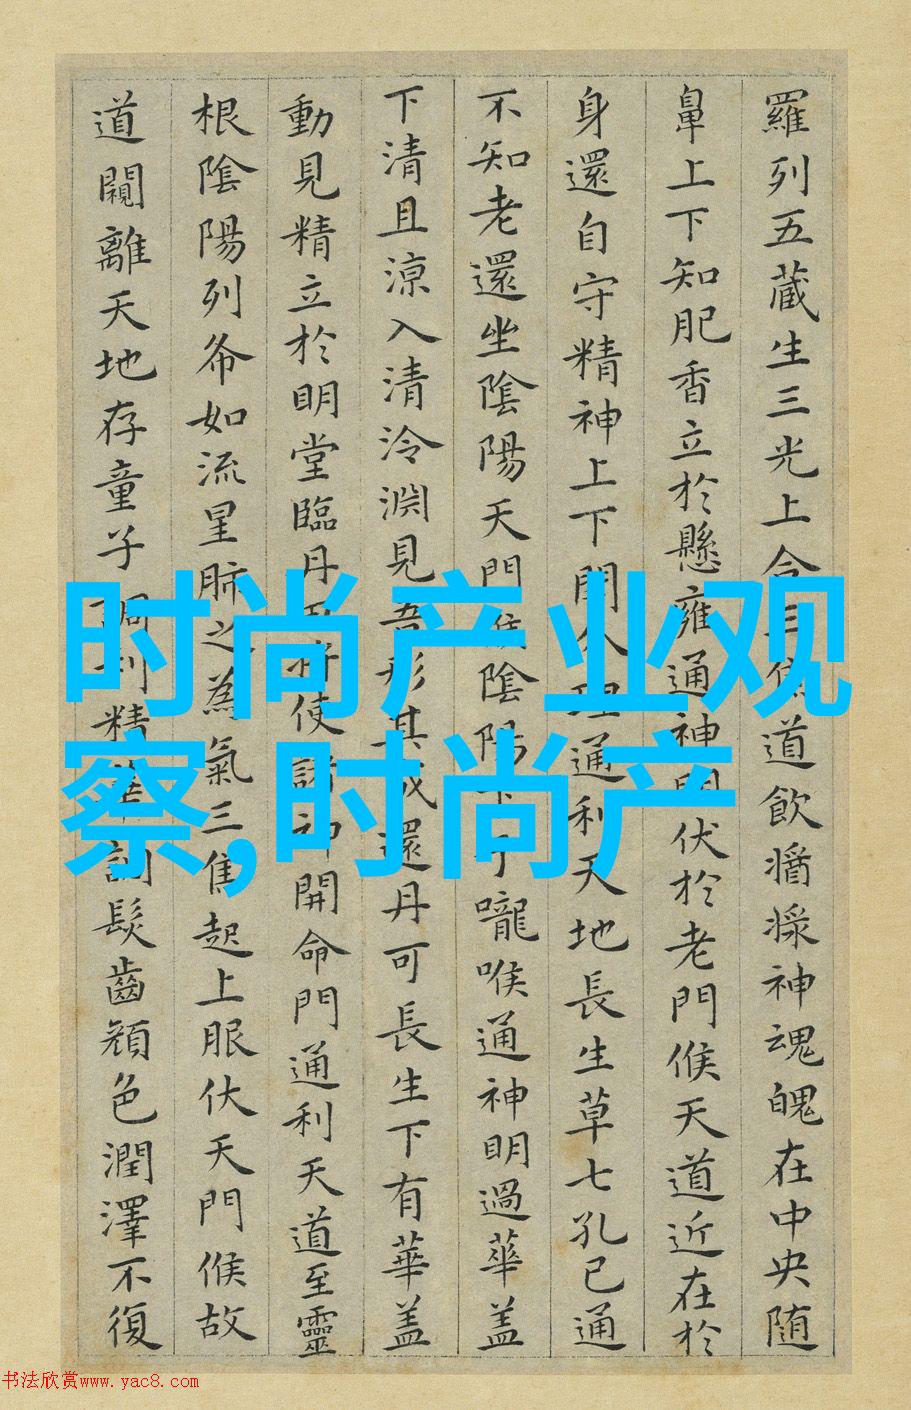 羅列五藏生三光上合三焦道飲醬漿神魂魄在中央随
鼻上下知肥香立於懸雍通神明伏於老門候天道近在於
身還自守精神上下開分理通利天地長生草七孔已通
不知老還坐陰陽天門候陰陽下于嚨喉通神明過華盖
下清且涼入清泠淵見吾形其成還丹可長生下有華盖
動見精立於明堂臨丹田将使諸神開命門通利天道至靈
根陰陽列布如流星肺之為氣三焦起上服伏天門候故
道闚離天地存童子調利精華調髮齒顏色潤澤不復
时尚产业观
察,时尚产
书法欣赏www.yac8.com